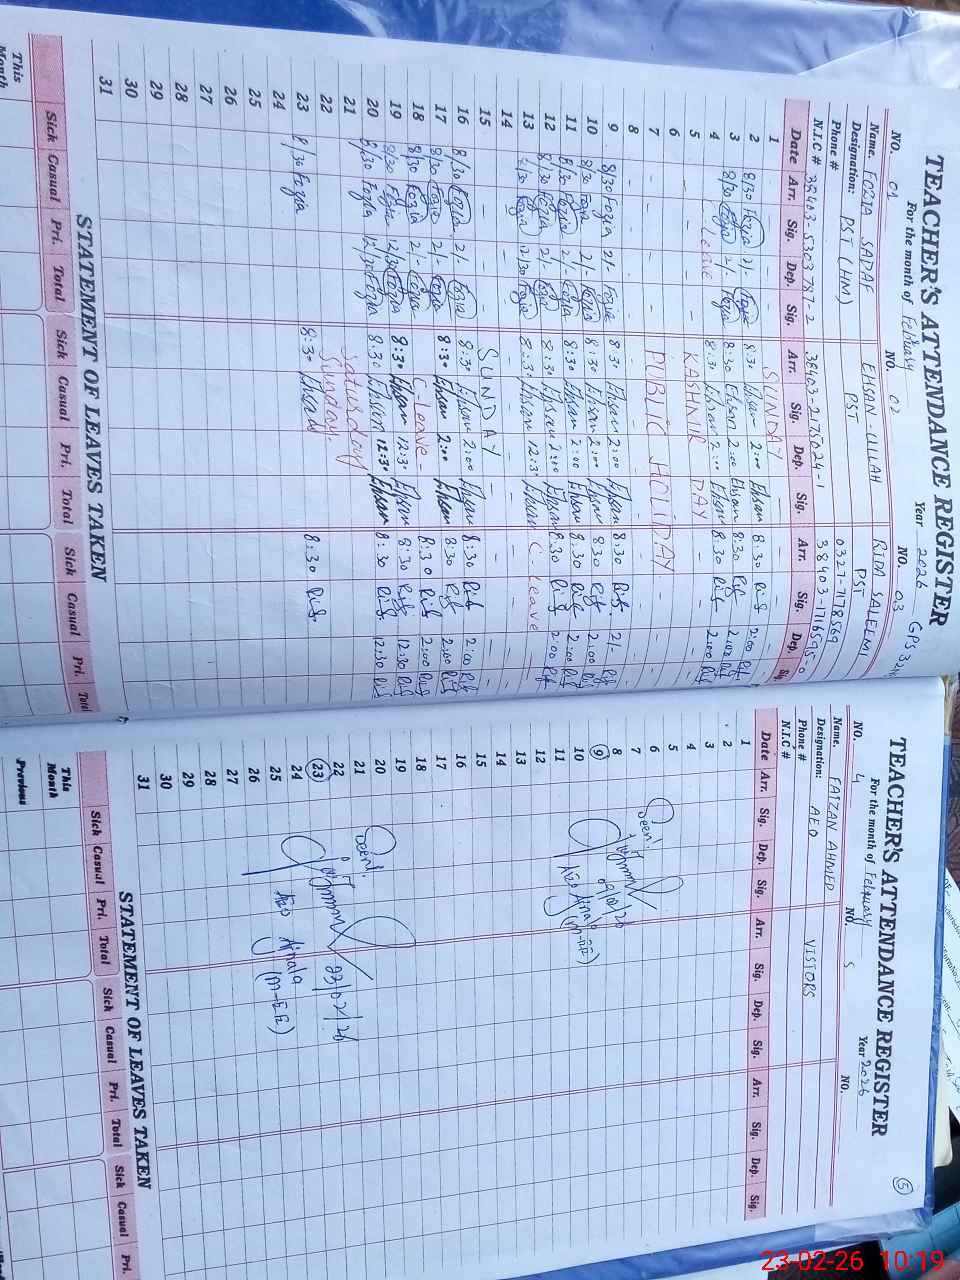 TEACHER'S ATTENDANCE REGISTER
For the month of February Year 2026 GPS
NO. 01 NO. 02 NO. 03
Name. FOZIA SADAF EHSAN-ULLAH RIDA SALEEMI
Designation: PST (HM) PST PST
Phone # 0327-7178569
N.I.C # 38403-5303787-2 38403-2175624-1 38403-1716595-0
Date Arr. Sig. Dep. Sig. Arr. Sig. Dep. Sig. Arr. Sig. Dep. Sig.
1 - - - - SUNDAY
2 8/30 Fozia 2/- Fozia 8:30 Ehsan 2:00 Ehsan 8:30 Rida 2:00 Rida
3 8/30 Fozia 2/- Fozia 8:30 Ehsan 2:00 Ehsan 8:30 Rida 2:00 Rida
4 Leave 8:30 Ehsan 2:00 Ehsan 8:30 Rida 2:00 Rida
5 - - - - KASHMIR DAY - - - -
6 - - - - - - - -
7 - - - - PUBLIC HOLIDAY - - - -
8 - - - - - - - -
9 8/30 Fozia 2/- Fozia 8:30 Ehsan 2:00 Ehsan 8:30 Rida 2/- Rida
10 8/30 Fozia 2/- Fozia 8:30 Ehsan 2:00 Ehsan 8:30 Rida 2:00 Rida
11 8/30 Fozia 2/- Fozia 8:30 Ehsan 2:00 Ehsan 8:30 Rida 2:00 Rida
12 8/30 Fozia 2/- Fozia 8:30 Ehsan 2:00 Ehsan 8:30 Rida 2:00 Rida
13 8/30 Fozia 12/30 Fozia 8:30 Ehsan 12:30 Ehsan C Leave
14 - - - - - - - -
15 - - - - SUNDAY - - - -
16 8/30 Fozia 2/- Fozia 8:30 Ehsan 2:00 Ehsan 8:30 Rida 2:00 Rida
17 8/30 Fozia 2/- Fozia 8:30 Ehsan 2:00 Ehsan 8:30 Rida 2:00 Rida
18 8/30 Fozia 2/- Fozia C leave - 8:30 Rida 2:00 Rida
19 8/30 Fozia 12/30 Fozia 8:30 Ehsan 12:30 Ehsan 8:30 Rida 12:30 Rida
20 8/30 Fozia 12/30 Fozia 8:30 Ehsan 12:30 Ehsan 8:30 Rida 12:30 Rida
21 Saturday
22 Sunday
23 8/30 Fozia 8:30 Ehsan 8:30 Rida
24
25
26
27
28
29
30
31
STATEMENT OF LEAVES TAKEN
Sick Casual Pri. Total Sick Casual Pri. Total Sick Casual Pri. Total
This Month
5
TEACHER'S ATTENDANCE REGISTER
For the month of February Year 2026
NO. 4 NO. 5 NO.
Name. FAIZAN AHMED VISTORS
Designation: AEO
Phone #
N.I.C #
Date Arr. Sig. Dep. Sig. Arr. Sig. Dep. Sig. Arr. Sig. Dep. Sig.
1
2
3
4
5
6 Seen!
7
8 09/02/26
9
10 AEO Ainala
11 (M-EE)
12
13
14
15
16
17
18
19
20 Seen!
21
22 23/02/26
23
24 AEO Ainala
25 (M-EE)
26
27
28
29
30
31
STATEMENT OF LEAVES TAKEN
Sick Casual Pri. Total Sick Casual Pri. Total Sick Casual Pri.
This Month
Previous
23-02-26 10:19